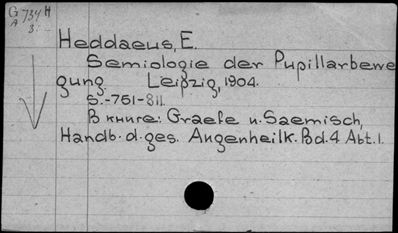 G 734 H
A 3
Heddaeus, E.
Semiologie der Pupillarbewe
gung. Leipzig, 1904.
S.-751-811.
В книге: Graefe u. Saemisch,
Handb. d. ges. Augenheilk. Bd. 4 Abt. 1.